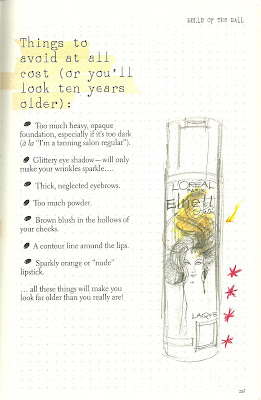 BELLE OF THE BALL
Things to
avoid at all
cost (or you'll
look ten years
older):
Too much heavy, opaque
foundation, especially if it's too dark
(à la "I'm a tanning salon regular").
Glittery eye shadow—will only
make your wrinkles sparkle....
Thick, neglected eyebrows.
Too much powder.
Brown blush in the hollows of
your cheeks.
A contour line around the lips.
Sparkly orange or "nude"
lipstick.
... all these things will make you
look far older than you really are!
L'ORÉAL
Elnett
LAQUE